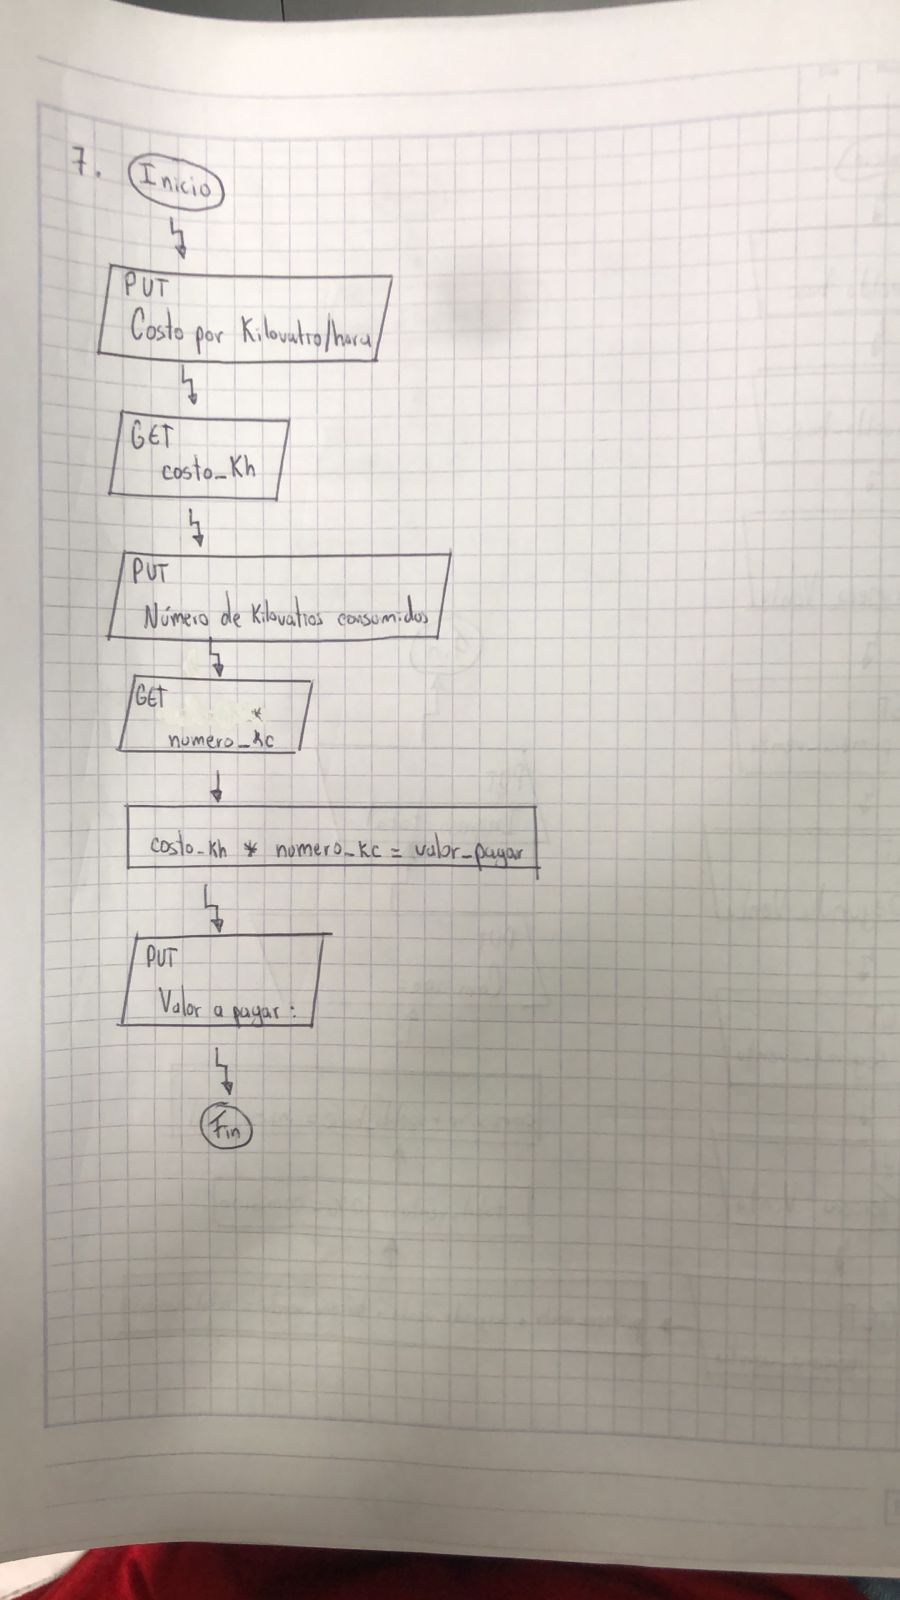 7. Inicio
PUT
Costo por Kilovatio/hora
GET
costo_Kh
PUT
Número de Kilovatios consumidos
GET
*
numero_Kc
costo_Kh * numero_Kc = valor_pagar
PUT
Valor a pagar:
Fin